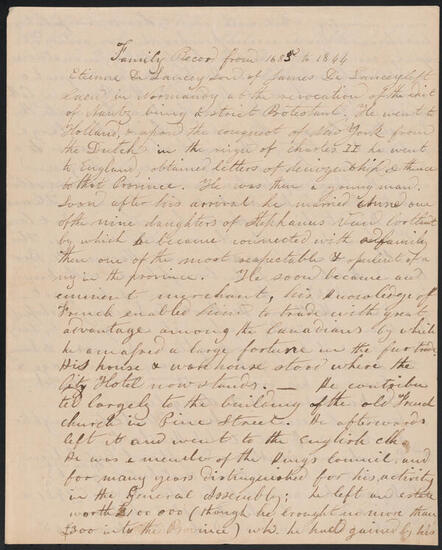 Family Record from 1685 to 1844
Etienne De Lancey son of James De Lancey left
Caen in Normandy at the revocation of the edict
of Nantz being a strict Protestant. He went to
Holland, & upon the conquest of New York from
the Dutch in the reign of Charles II he went
to England, obtained letters of denizenship & thence
to that Province. He was then a young man.
Soon after his arrival he married Anne one
of the nine daughters of Stephanus Van Cortlandt
by which he became connected with a family
then one of the most respectable & opulent of a
ny in the province. He soon became an
eminent merchant, his knowledge of
French enabled him to trade with great
advantage among the Canadians by which
he amassed a large fortune in the fur trade
His house & warehouse stood where the
City Hotel now stands. — He contribu
ted largely to the building of the old French
church in Pine Street. He afterwards
left it and went to the English chh.
He was a member of the King's Council, and
for many years distinguished for his activity
in the General Assembly; he left an estate
worth £100 000 (though he brought no more than
£300 into the Province) wh. he had gained by his